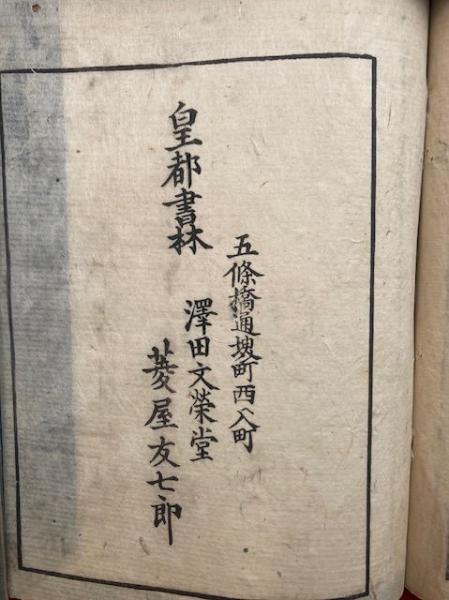 五條橋通堺町西入町
皇都書林
澤田文榮堂
菱屋友七郎